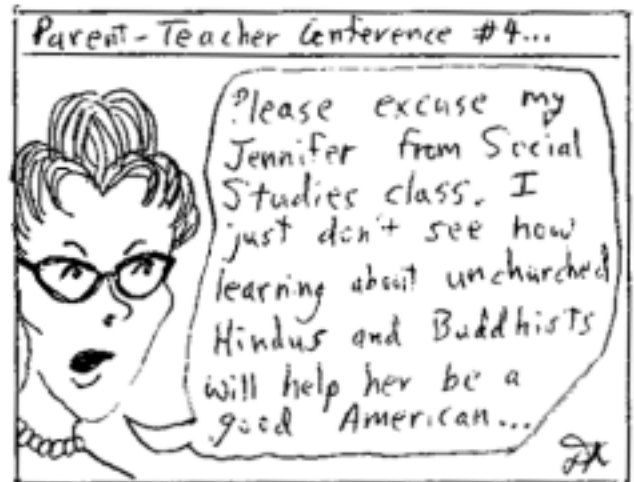 Parent-Teacher Conference #4...
Please excuse my
Jennifer from Social
Studies class. I
just don't see how
learning about unchurched
Hindus and Buddhists
will help her be a
good American...